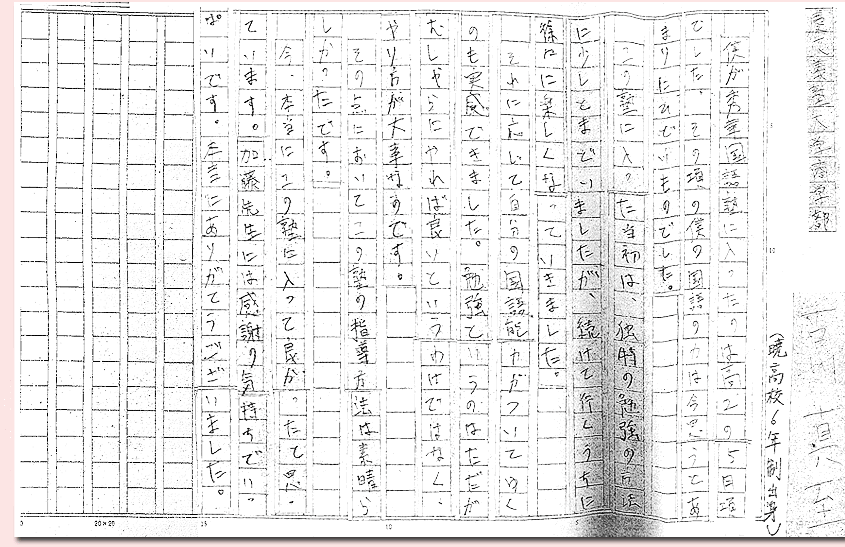 慶応義塾大学商学部
(暁高校6年制出身)
僕が秀塾国語塾に入ったのは高2の5月頃
でした。その頃の僕の国語の力は今思うとあ
まりにひでいものでした。
この塾に入った当初は、独特の勉強の方法
に少しとまどいましたが、続けて行くうちに
徐々に楽しくなっていきました。
それに応じて自分の国語能力がついてゆく
のも実感できました。勉強ていうのはただが
むしゃらにやれば良いというわけではなく、
やり方が大事なのです。
その点においてこの塾の指導方法は素晴ら
しかったです。
今、本当にこの塾に入って良かったて思っ
ています。加藤先生には感謝の気持ちでいっ
ぱいです。本当にありがてうございました。
5
10
5
10
15
20×20